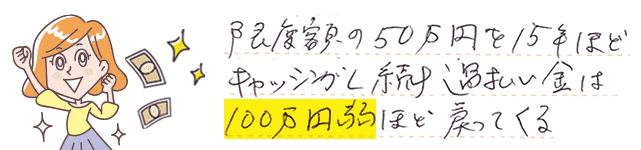 限度額の50万円を15年ほど
キャッシングし続け過払い金は
100万円弱ほど戻ってくる